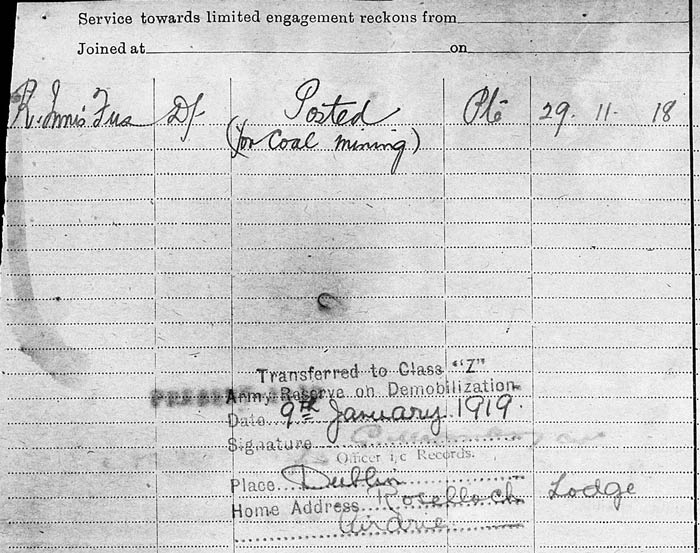 Service towards limited engagement reckons from
Joined at on
R. Innis Fus Df Posted Pte 29. 11. 18
(for Coal mining)
Transferred to Class "Z"
Army Reserve on Demobilization
Date 9th January 1919.
Signature
Officer i/c Records.
Place Dublin
Home Address Roselloch Lodge
Airdrie